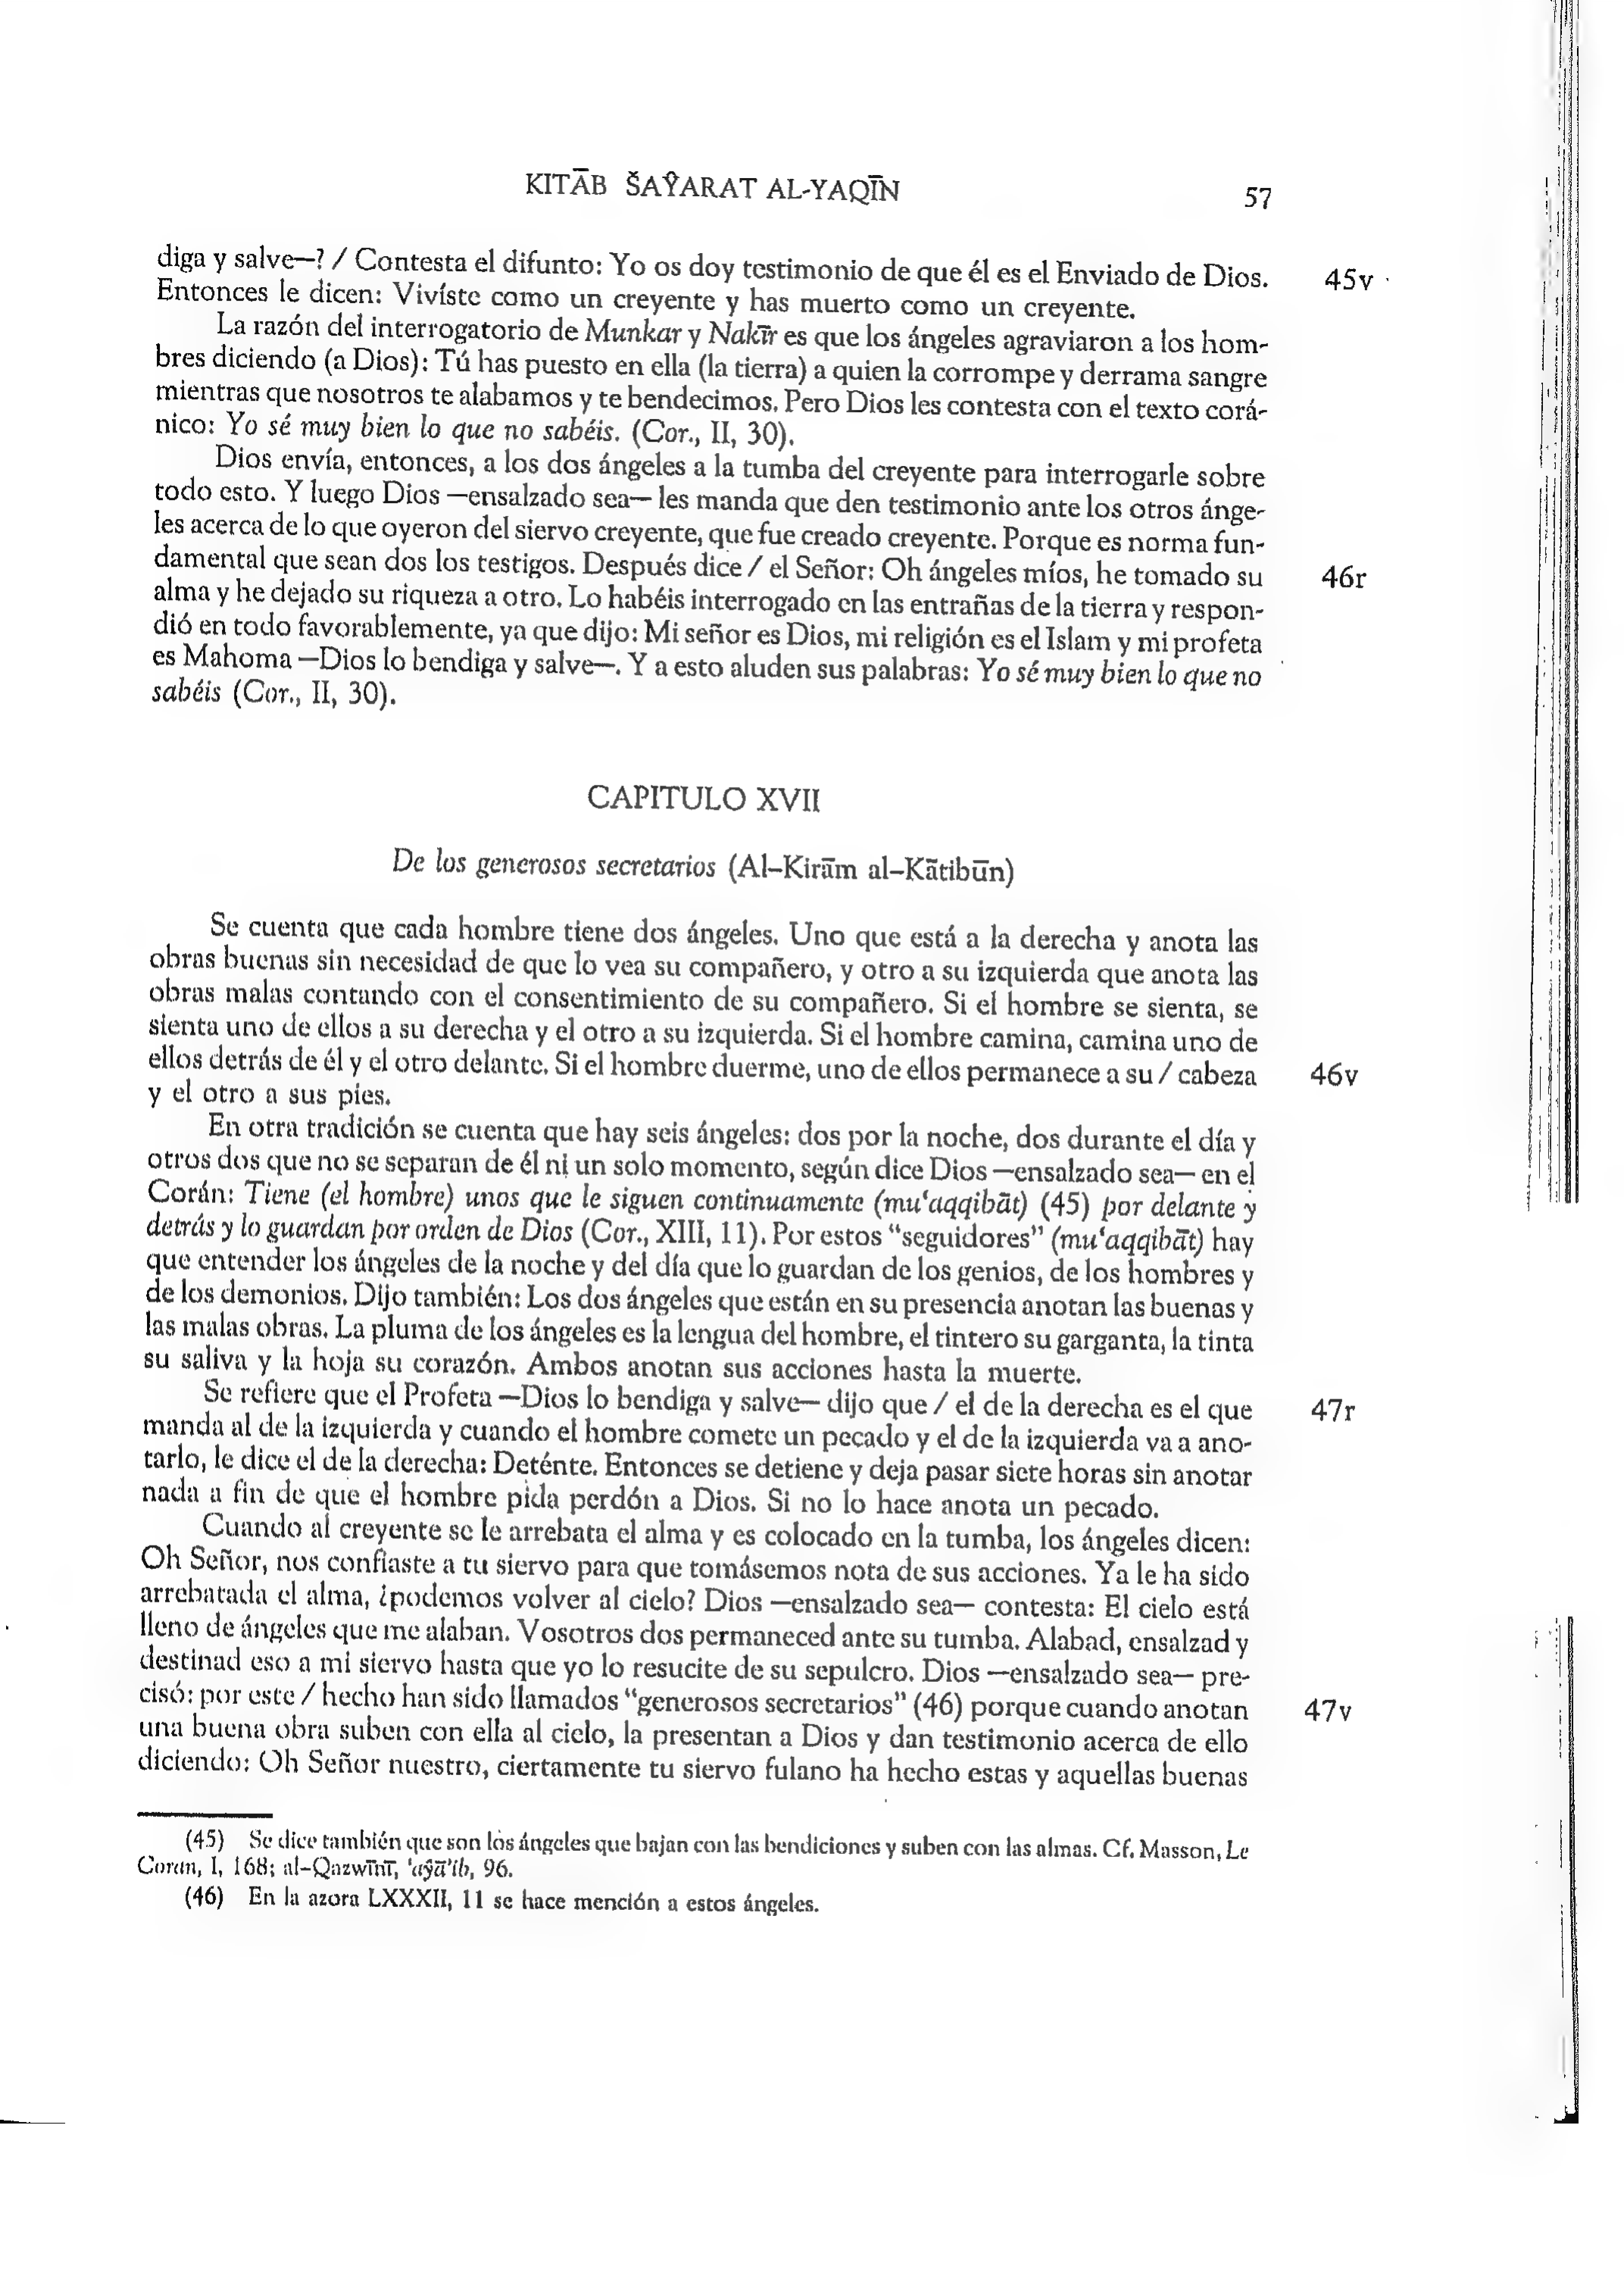 KITĀB ŠAŶARAT AL-YAQĪN 57
diga y salve—? / Contesta el difunto: Yo os doy testimonio de que él es el Enviado de Dios. 45v
Entonces le dicen: Vivíste como un creyente y has muerto como un creyente.
La razón del interrogatorio de Munkar y Nakīr es que los ángeles agraviaron a los hom-
bres diciendo (a Dios): Tú has puesto en ella (la tierra) a quien la corrompe y derrama sangre
mientras que nosotros te alabamos y te bendecimos. Pero Dios les contesta con el texto corá-
nico: Yo sé muy bien lo que no sabéis. (Cor., II, 30).
Dios envía, entonces, a los dos ángeles a la tumba del creyente para interrogarle sobre
todo esto. Y luego Dios —ensalzado sea— les manda que den testimonio ante los otros ánge-
les acerca de lo que oyeron del siervo creyente, que fue creado creyente. Porque es norma fun-
damental que sean dos los testigos. Después dice / el Señor: Oh ángeles míos, he tomado su 46r
alma y he dejado su riqueza a otro. Lo habéis interrogado en las entrañas de la tierra y respon-
dió en todo favorablemente, ya que dijo: Mi señor es Dios, mi religión es el Islam y mi profeta
es Mahoma —Dios lo bendiga y salve—. Y a esto aluden sus palabras: Yo sé muy bien lo que no
sabéis (Cor., II, 30).
CAPITULO XVII
De los generosos secretarios (Al-Kirām al-Kātibūn)
Se cuenta que cada hombre tiene dos ángeles. Uno que está a la derecha y anota las
obras buenas sin necesidad de que lo vea su compañero, y otro a su izquierda que anota las
obras malas contando con el consentimiento de su compañero. Si el hombre se sienta, se
sienta uno de ellos a su derecha y el otro a su izquierda. Si el hombre camina, camina uno de
ellos detrás de él y el otro delante. Si el hombre duerme, uno de ellos permanece a su / cabeza 46v
y el otro a sus pies.
En otra tradición se cuenta que hay seis ángeles: dos por la noche, dos durante el día y
otros dos que no se separan de él ni un solo momento, según dice Dios —ensalzado sea— en el
Corán: Tiene (el hombre) unos que le siguen continuamente (mu‘aqqibāt) (45) por delante y
detrás y lo guardan por orden de Dios (Cor., XIII, 11). Por estos "seguidores" (mu‘aqqibāt) hay
que entender los ángeles de la noche y del día que lo guardan de los genios, de los hombres y
de los demonios. Dijo también: Los dos ángeles que están en su presencia anotan las buenas y
las malas obras. La pluma de los ángeles es la lengua del hombre, el tintero su garganta, la tinta
su saliva y la hoja su corazón. Ambos anotan sus acciones hasta la muerte.
Se refiere que el Profeta —Dios lo bendiga y salve— dijo que / el de la derecha es el que 47r
manda al de la izquierda y cuando el hombre comete un pecado y el de la izquierda va a ano-
tarlo, le dice el de la derecha: Deténte. Entonces se detiene y deja pasar siete horas sin anotar
nada a fin de que el hombre pida perdón a Dios. Si no lo hace anota un pecado.
Cuando al creyente se le arrebata el alma y es colocado en la tumba, los ángeles dicen:
Oh Señor, nos confiaste a tu siervo para que tomásemos nota de sus acciones. Ya le ha sido
arrebatada el alma, ¿podemos volver al cielo? Dios —ensalzado sea— contesta: El cielo está
lleno de ángeles que me alaban. Vosotros dos permaneced ante su tumba. Alabad, ensalzad y
destinad eso a mi siervo hasta que yo lo resucite de su sepulcro. Dios —ensalzado sea— pre-
cisó: por este / hecho han sido llamados "generosos secretarios" (46) porque cuando anotan 47v
una buena obra suben con ella al cielo, la presentan a Dios y dan testimonio acerca de ello
diciendo: Oh Señor nuestro, ciertamente tu siervo fulano ha hecho estas y aquellas buenas
(45) Se dice también que son los ángeles que bajan con las bendiciones y suben con las almas. Cf. Masson, Le
Coran, I, 168; al-Qazwīnī, 'aŷā'ib, 96.
(46) En la azora LXXXII, 11 se hace mención a estos ángeles.